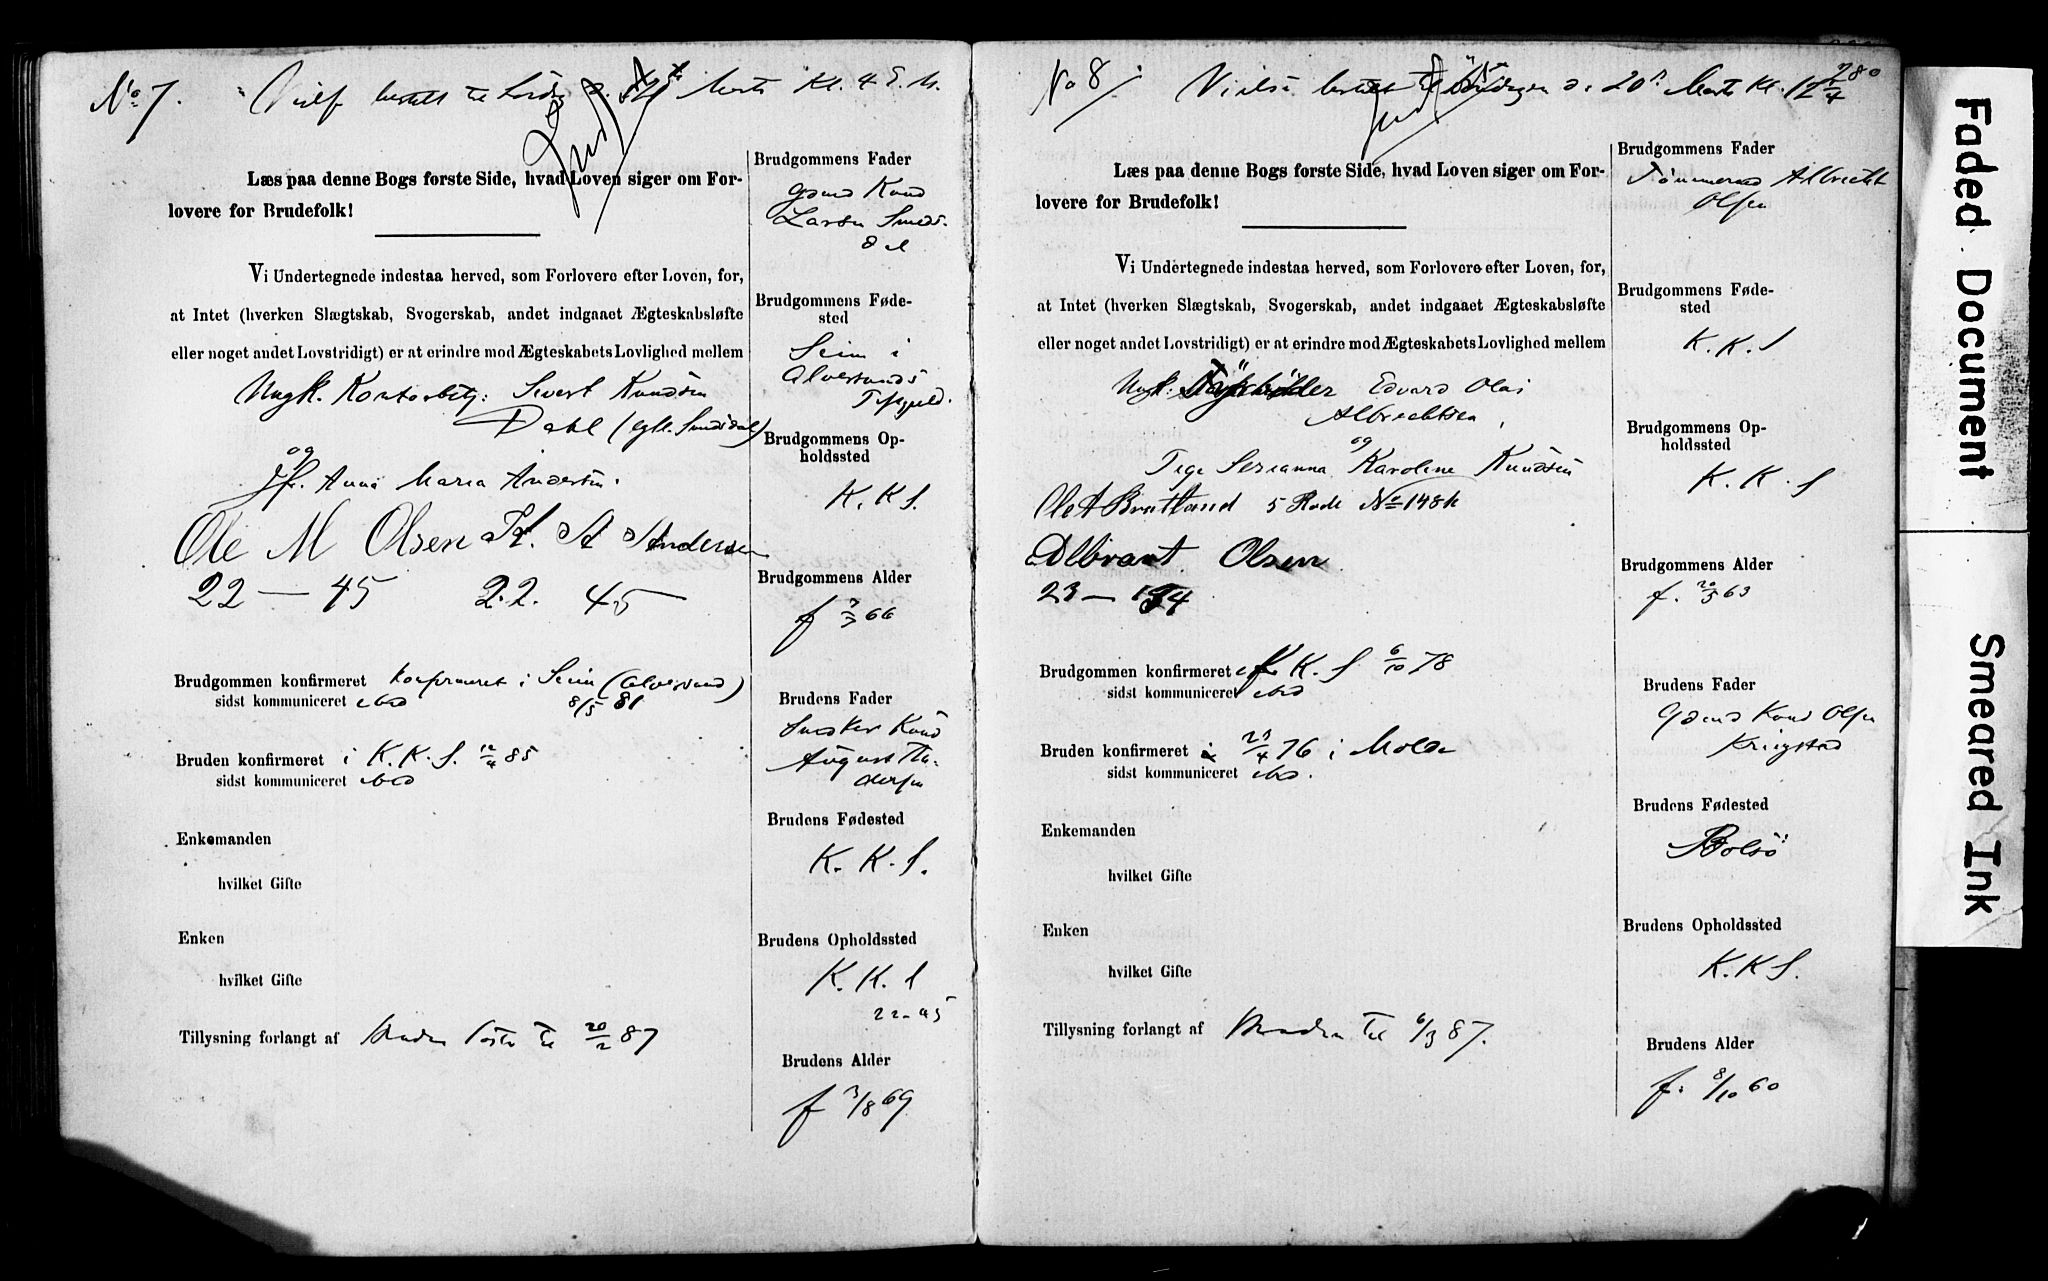 No 7. Vielse bestilt til Lørdag d. Marts Kl. 4 E. M.
Læs paa denne Bogs første Side, hvad Loven siger om For-
lovere for Brudefolk!
Vi Undertegnede indestaa herved, som Forlovere efter Loven, for,
at Intet (hverken Slægtskab, Svogerskab, andet indgaaet Ægteskabsløfte
eller noget andet Lovstridigt) er at erindre mod Ægteskabets Lovlighed mellem
Ungk. Kontorbetj. Sivert Knudsen
Dahl (egtl. Smedsdal)
og
Jfr. Anna Maria Andersen.
Ole M Olsen A Andersen
22 — 45 22. 45
Brudgommen konfirmeret konfirmeret i Seim (Alversund)
sidst kommuniceret ibid 8/5 81
Bruden konfirmeret i K. K. S. 12/4 85
sidst kommuniceret ibid
Enkemanden
hvilket Gifte
Enken
hvilket Gifte
Tillysning forlangt af Bruden første til 20/2 87
Brudgommens Fader
Gbmd Knud
Larsen Smeds-
dal
Brudgommens Føde-
sted
Seim i
Alversunds
Prgjeld.
Brudgommens Op-
holdssted
K. K. S.
Brudgommens Alder
f 7/3 66
Brudens Fader
Snedker Knud
August An-
dersen
Brudens Fødested
K. K. S.
Brudens Opholdssted
K. K. S
22-45
Brudens Alder
f 3/8 69
280
No 8 Vielse bestilt til Søndagen d. 20de Marts Kl. 12 1/4
Læs paa denne Bogs første Side, hvad Loven siger om For-
lovere for Brudefolk!
Vi Undertegnede indestaa herved, som Forlovere efter Loven, for,
at Intet (hverken Slægtskab, Svogerskab, andet indgaaet Ægteskabsløfte
eller noget andet Lovstridigt) er at erindre mod Ægteskabets Lovlighed mellem
Ungk. Edvard Olai
Albrechtsen
og
Pige Serianna Karoline Knudsen
Ole A Brattland 5 Rode No 148 k
Albrant Olsen
23 —
Brudgommen konfirmeret K. K. S 6/10 78
sidst kommuniceret ibid
Bruden konfirmeret 23/4 76 i Molde
sidst kommuniceret ibid.
Enkemanden
hvilket Gifte
Enken
hvilket Gifte
Tillysning forlangt af Bruden til 6/3 87.
Brudgommens Fader
Tømmermd Albrecht
Olsen
Brudgommens Føde-
sted
K. K. S
Brudgommens Op-
holdssted
K. K. S
Brudgommens Alder
f. 20/5 63
Brudens Fader
Gbmd Knud Olsen
Kringstad
Brudens Fødested
Bolsø
Brudens Opholdssted
K. K S.
Brudens Alder
f. 8/10 60
Faded Document
Smeared Ink